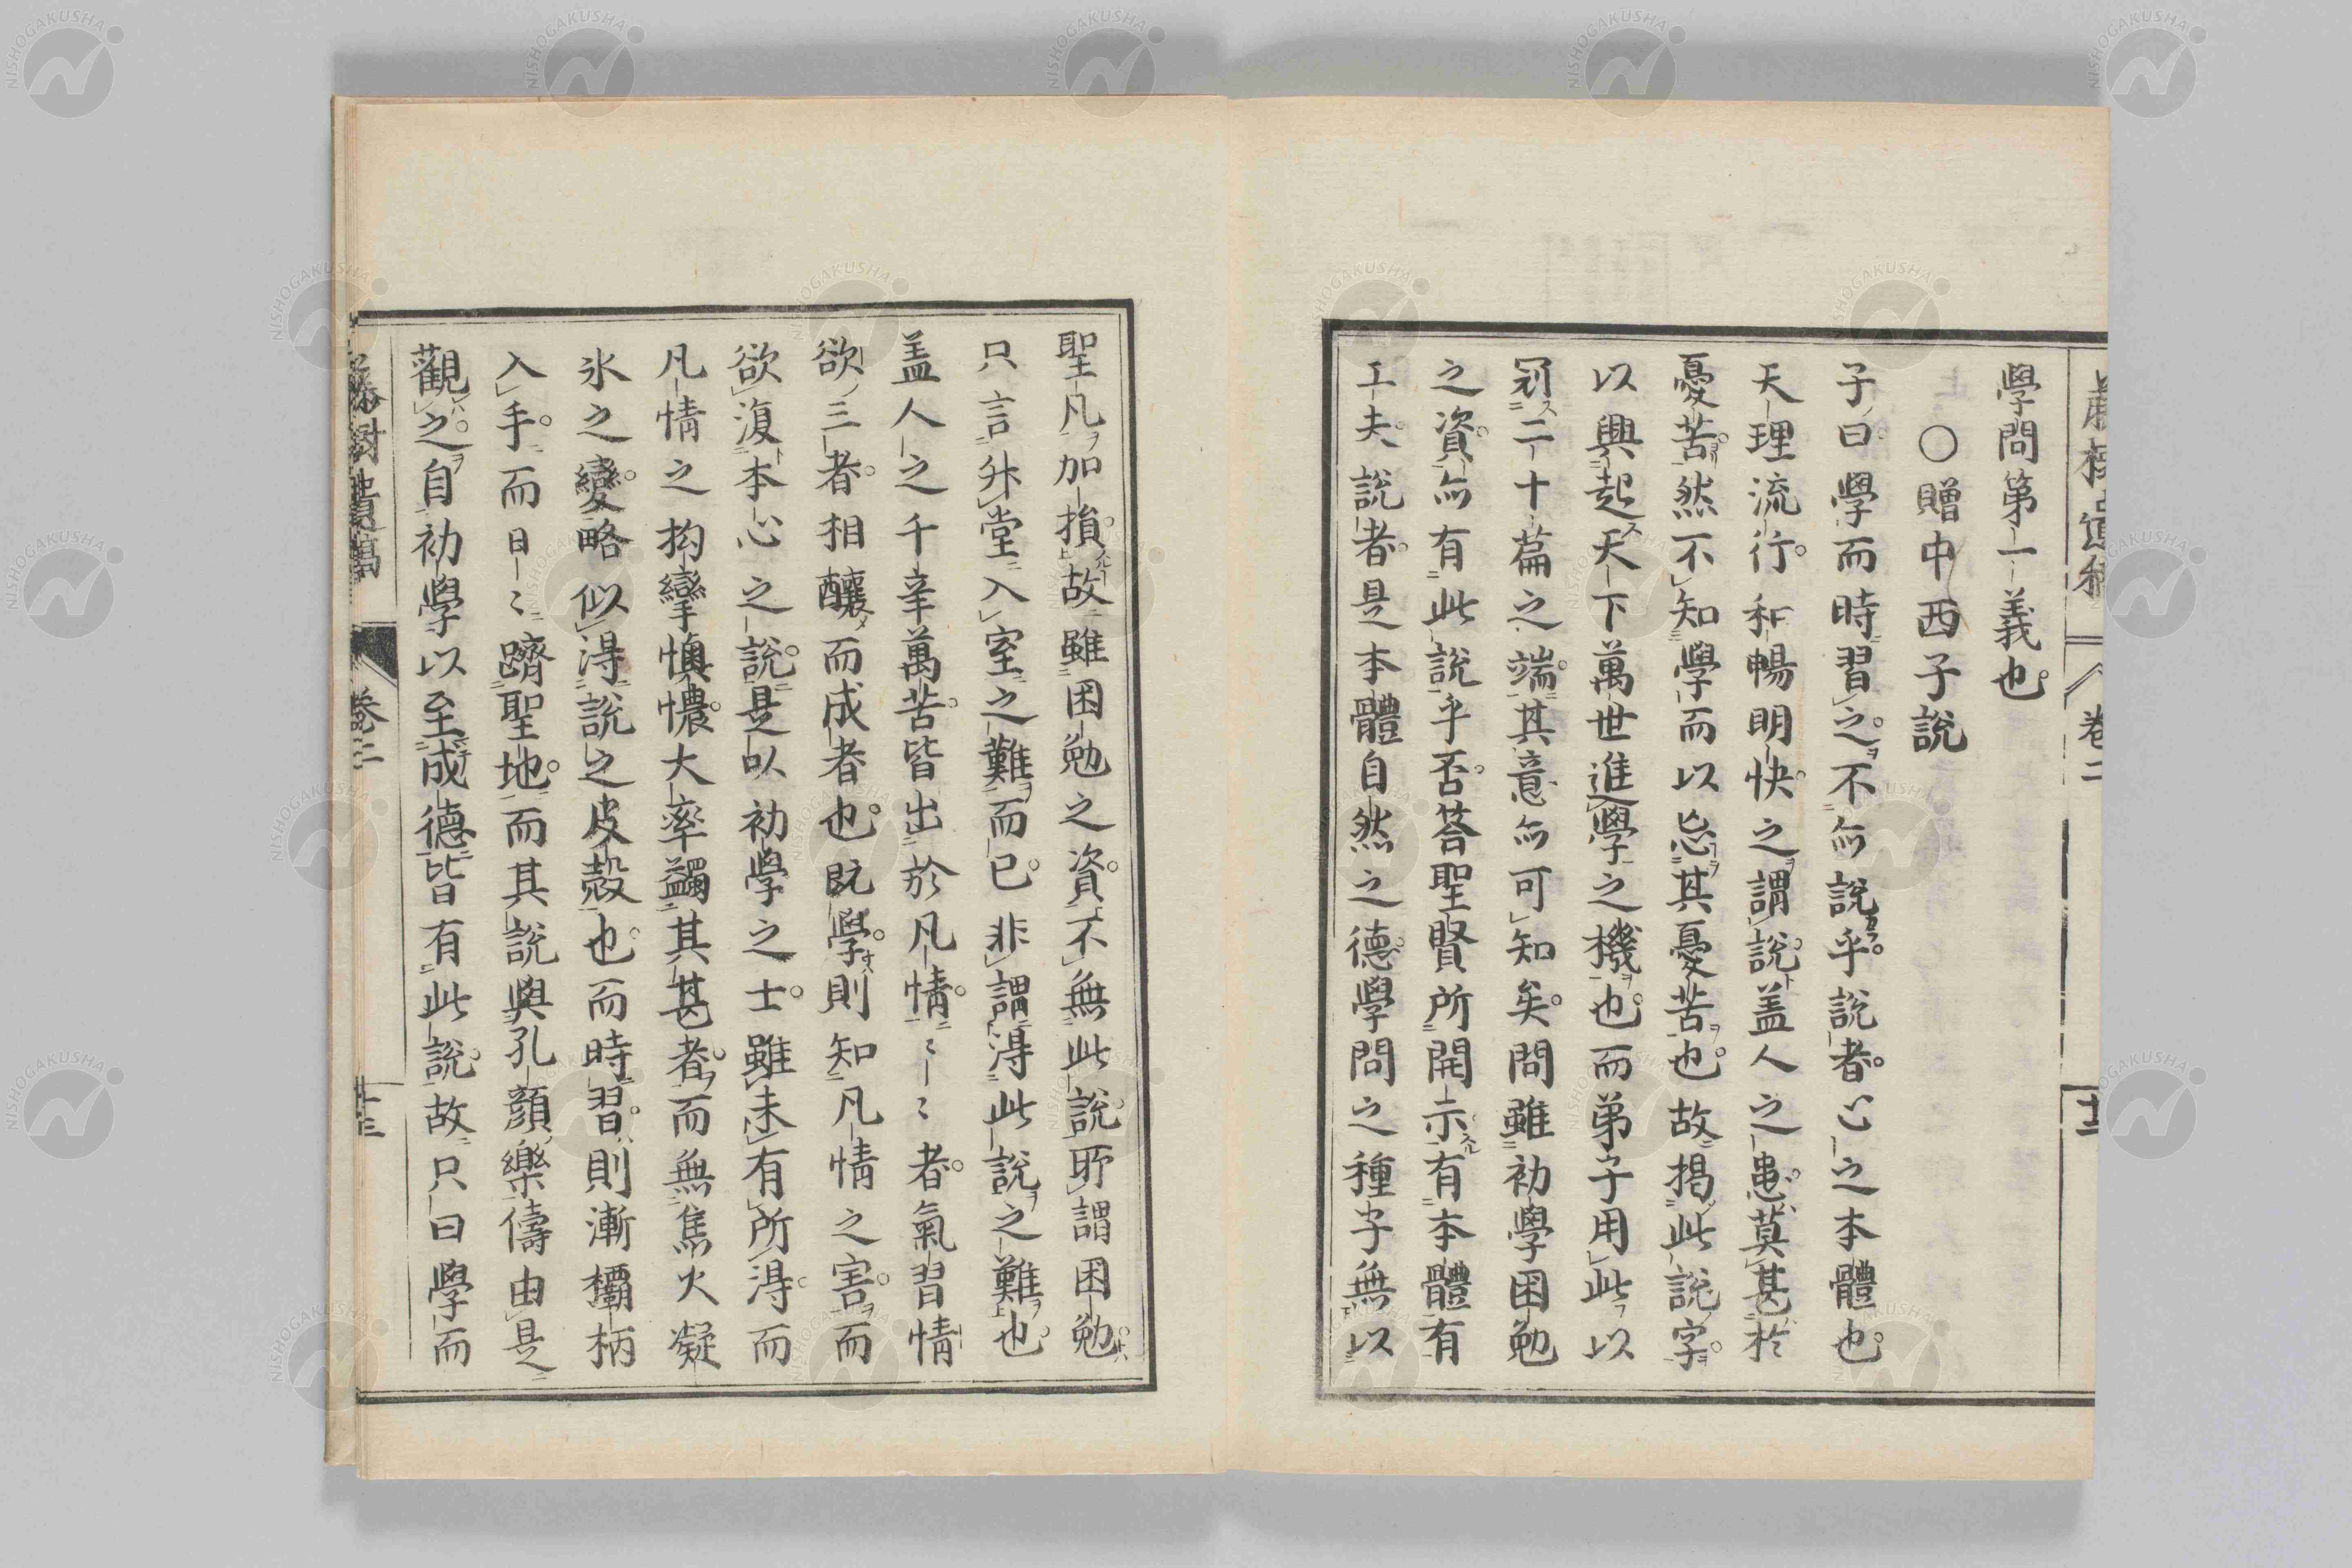 學問第一義也。
○贈中西子說
子曰學而時習之。不亦說乎。說者。心之本體也。
天理流行。和暢明快之謂說。盖人之患。莫甚於
憂苦。然不知學而以忘其憂苦也。故揭此說字。
以興起天下萬世進學之機也。而弟子用此以
冠二十篇之端。其意亦可知矣。問雖初學困勉
之資。亦有此說乎否。荅聖賢所開示。有本體有
工夫。說者。是本體自然之德。學問之種子。無以
聖凡加損。故雖困勉之資。不無此說。所謂困勉。
只言升堂入室之難而已。非謂得此說之難也。
盖人之千辛萬苦。皆出於凡情。凡情者。氣習情
欲。三者。相釀而成者也。既學。則知凡情之害。而
欲復本心之說。是以初學之士。雖未有所得。而
凡情之拘攣懊憹。大率蠲其甚者。而無焦火凝
氷之變。略似得說之皮殼也。而時習。則漸欛柄
入手。而日日躋聖地。而其說與孔顏樂儔。由是
觀之。自初學以至成德。皆有此說。故只曰學而
藤樹遺稿 卷二 十三
卷二
NISHOGAKUSHA